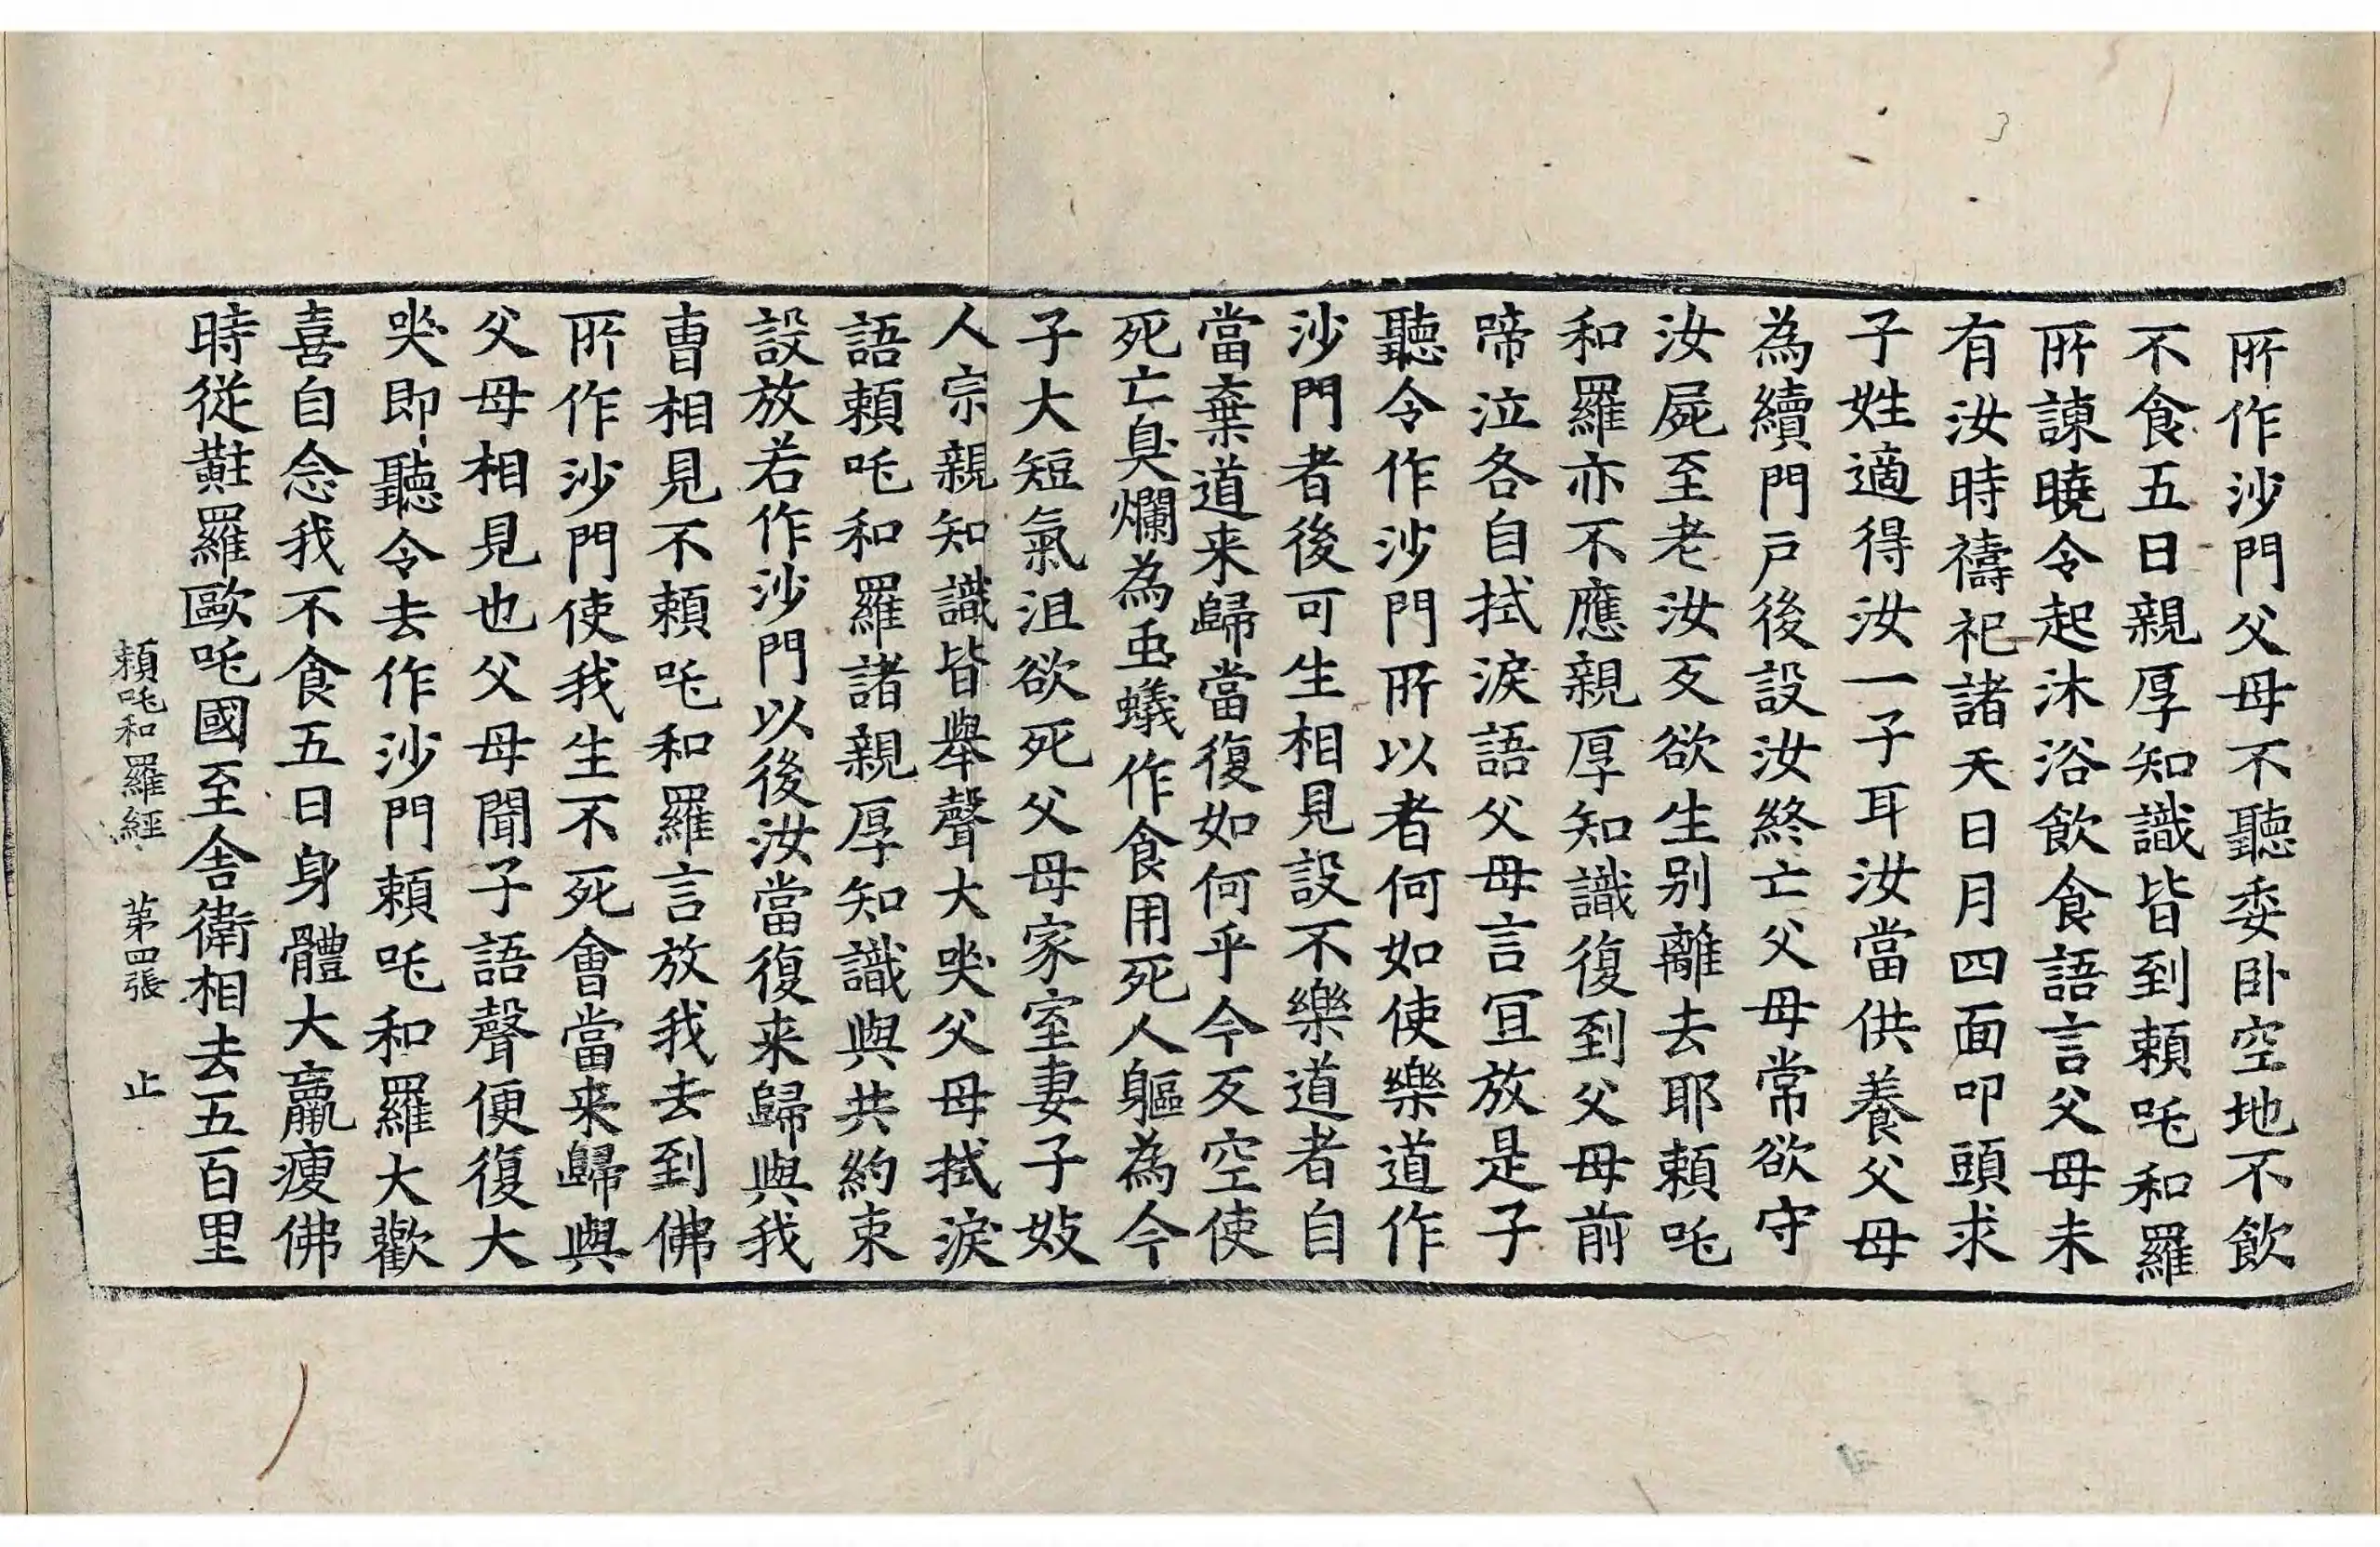 所作沙門父母不聽委卧空地不飲
不食五日親厚知識皆到賴吒和羅
所諫曉令起沐浴飲食語言父母未
有汝時禱祀諸天日月四面叩頭求
子姓適得汝一子耳汝當供養父母
為續門戶後設汝終亡父母常欲守
汝屍至老汝反欲生別離去耶賴吒
和羅亦不應親厚知識復到父母前
啼泣各自拭淚語父母言冝放是子
聽令作沙門所以者何如使樂道作
沙門者後可生相見設不樂道者自
當棄道来歸當復如何乎今反空使
死亡臭爛為䖝蟻作食用死人軀為今
子大短氣沮欲死父母家室妻子妓
人宗親知識皆舉聲大哭父母拭淚
語賴吒和羅諸親厚知識與共約束
設放若作沙門以後汝當復来歸與我
曹相見不賴吒和羅言放我去到佛
所作沙門使我生不死會當来歸與
父母相見也父母聞子語聲便復大
哭即聽令去作沙門賴吒和羅大歡
喜自念我不食五日身體大羸瘦佛
時從黈羅歐吒國至舍衛相去五百里
賴吒和羅經 第四張 止